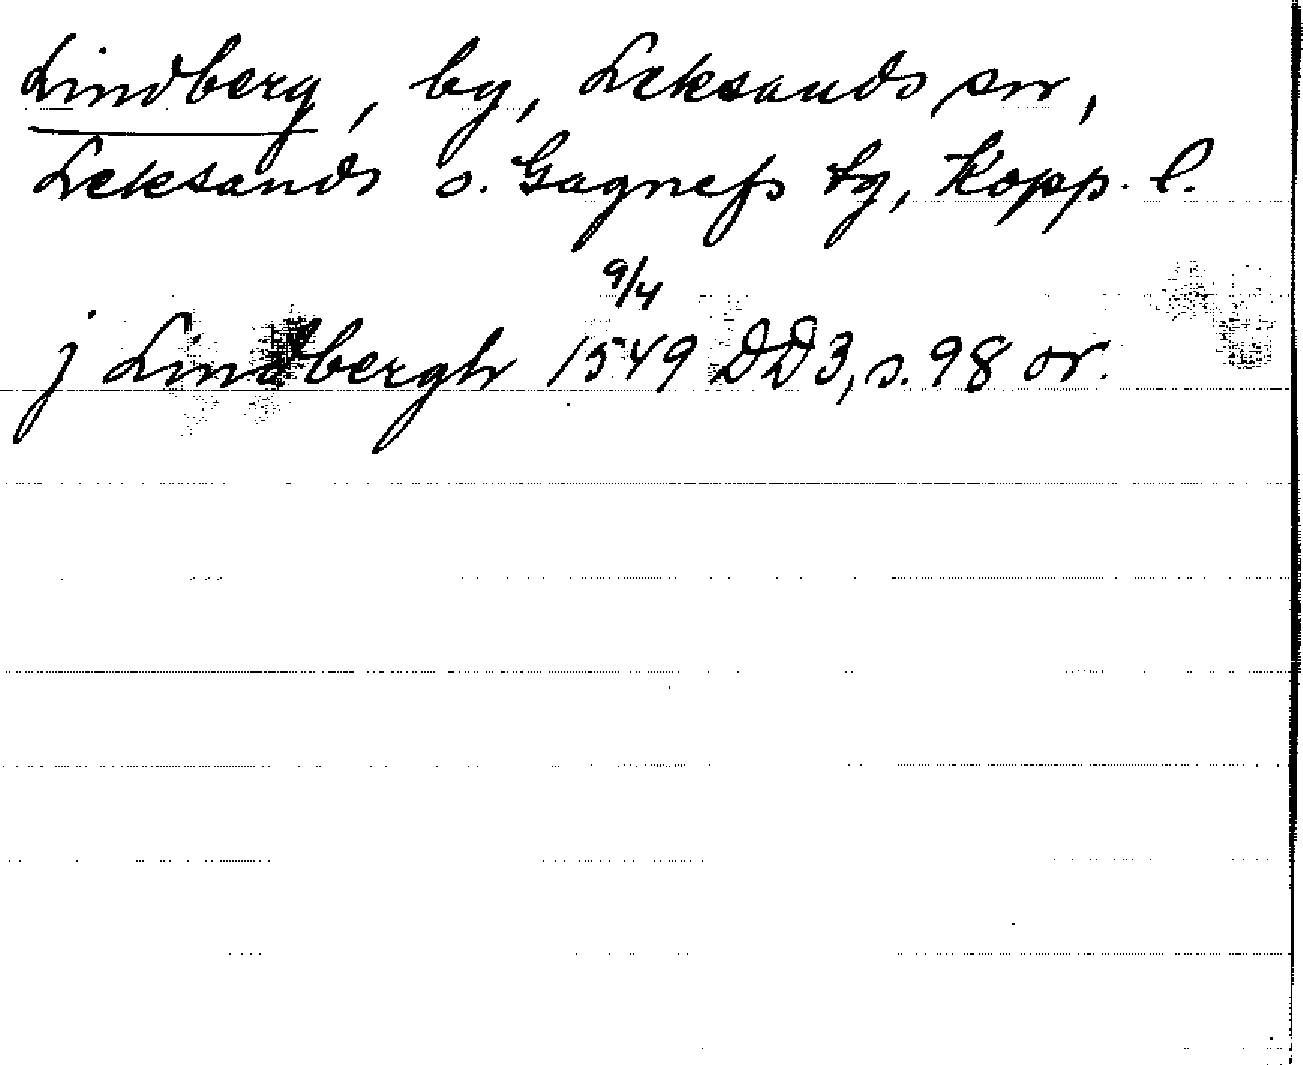 Lindberg, by, Leksands sn,
Leksands o. Gagnefs tg, Kopp. l.
9/4
j Lindbergh 1549 DD3, s. 98 or.